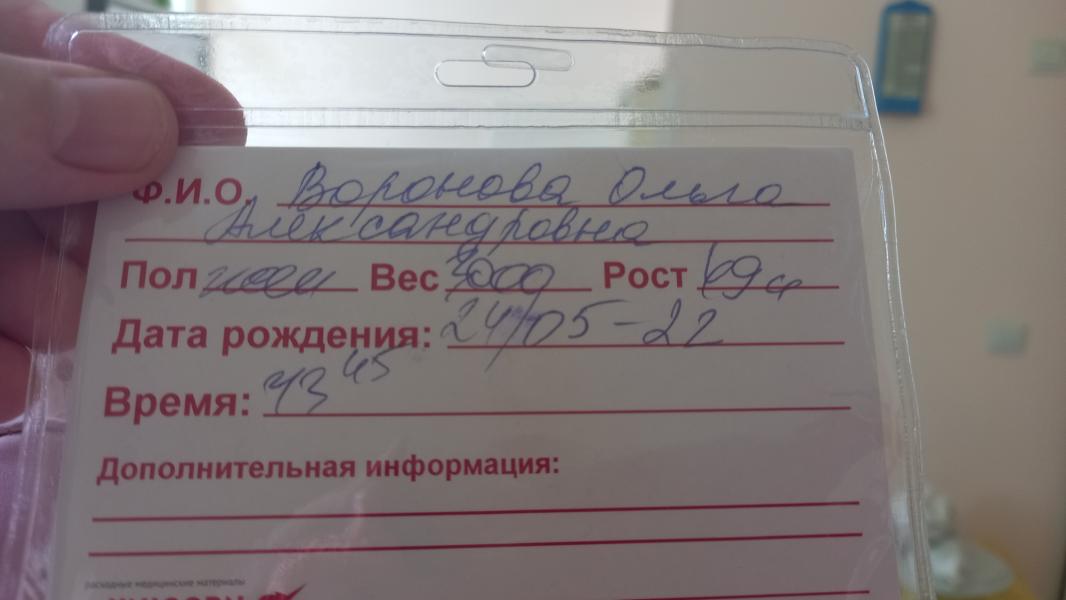 Ф.И.О. Воронова Ольга
Александровна
Пол жен Вес 3000 Рост 49 см
Дата рождения: 24/05-22
Время: 13 45
Дополнительная информация:
расходные медицинские материалы